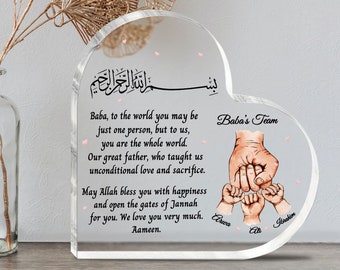 بسم الله الرحمن الرحيم
Baba, to the world you may be
just one person, but to us,
you are the whole world.
Our great father, who taught us
unconditional love and sacrifice.
May Allah bless you with happiness
and open the gates of Jannah
for you. We love you very much.
Aameen.
Baba's Team
Ali
Ibrahim